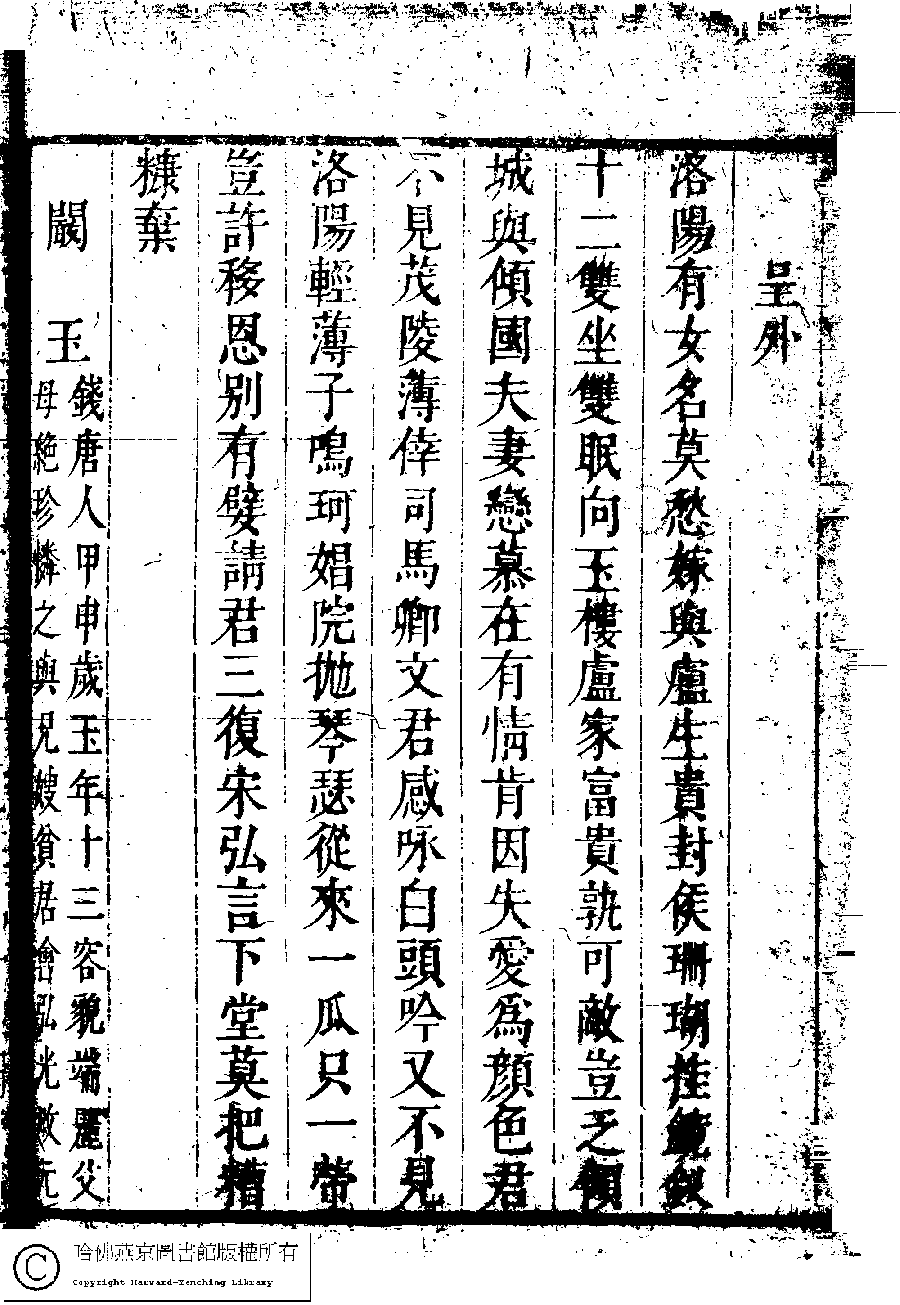 呈外
洛陽有女名莫愁嫁與盧生貴封侯珊瑚挂鏡釵
十二雙坐雙眠向玉樓盧家富貴孰可敵豈乏傾
城與傾國夫妻戀慕在有情肯因失愛爲顏色君
不見茂陵薄倖司馬卿文君感咏白頭吟又不見
洛陽輕薄子鳴珂娼院拋琴瑟從來一瓜只一蒂
豈許移恩別有嬖請君三復宋弘言下堂莫把糟
糠棄
闞 玉
錢唐人甲申歲玉年十三容貌端麗父
母絶珍憐之與兄嫂貧居
哈佛燕京圖書館版權所有
Copyright Harvard-Yenching Library